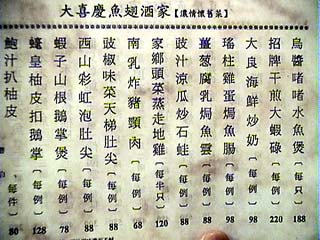 大喜慶魚翅酒家【濃情懷舊菜】
烏醬啫啫水魚煲〔每例〕188
招牌干煎大蝦碌〔每例〕220
大良海鮮炒奶〔每例〕98
瑤柱雞蛋焗魚腸〔每例〕98
薑葱腐乳焗魚雲〔每例〕88
豉汁涼瓜炒石蛙〔每例〕88
家鄉頭菜蒸走地雞〔每半只〕120
南乳炸豬頸肉〔每例〕68
豉椒味菜天梯肚尖〔每例〕88
西山彩虹泡肚尖〔每例〕88
蝦子山根鵝掌煲〔每例〕78
蠔皇柚皮扣鵝掌〔每例〕128
鮑汁扒柚皮〔每件〕80